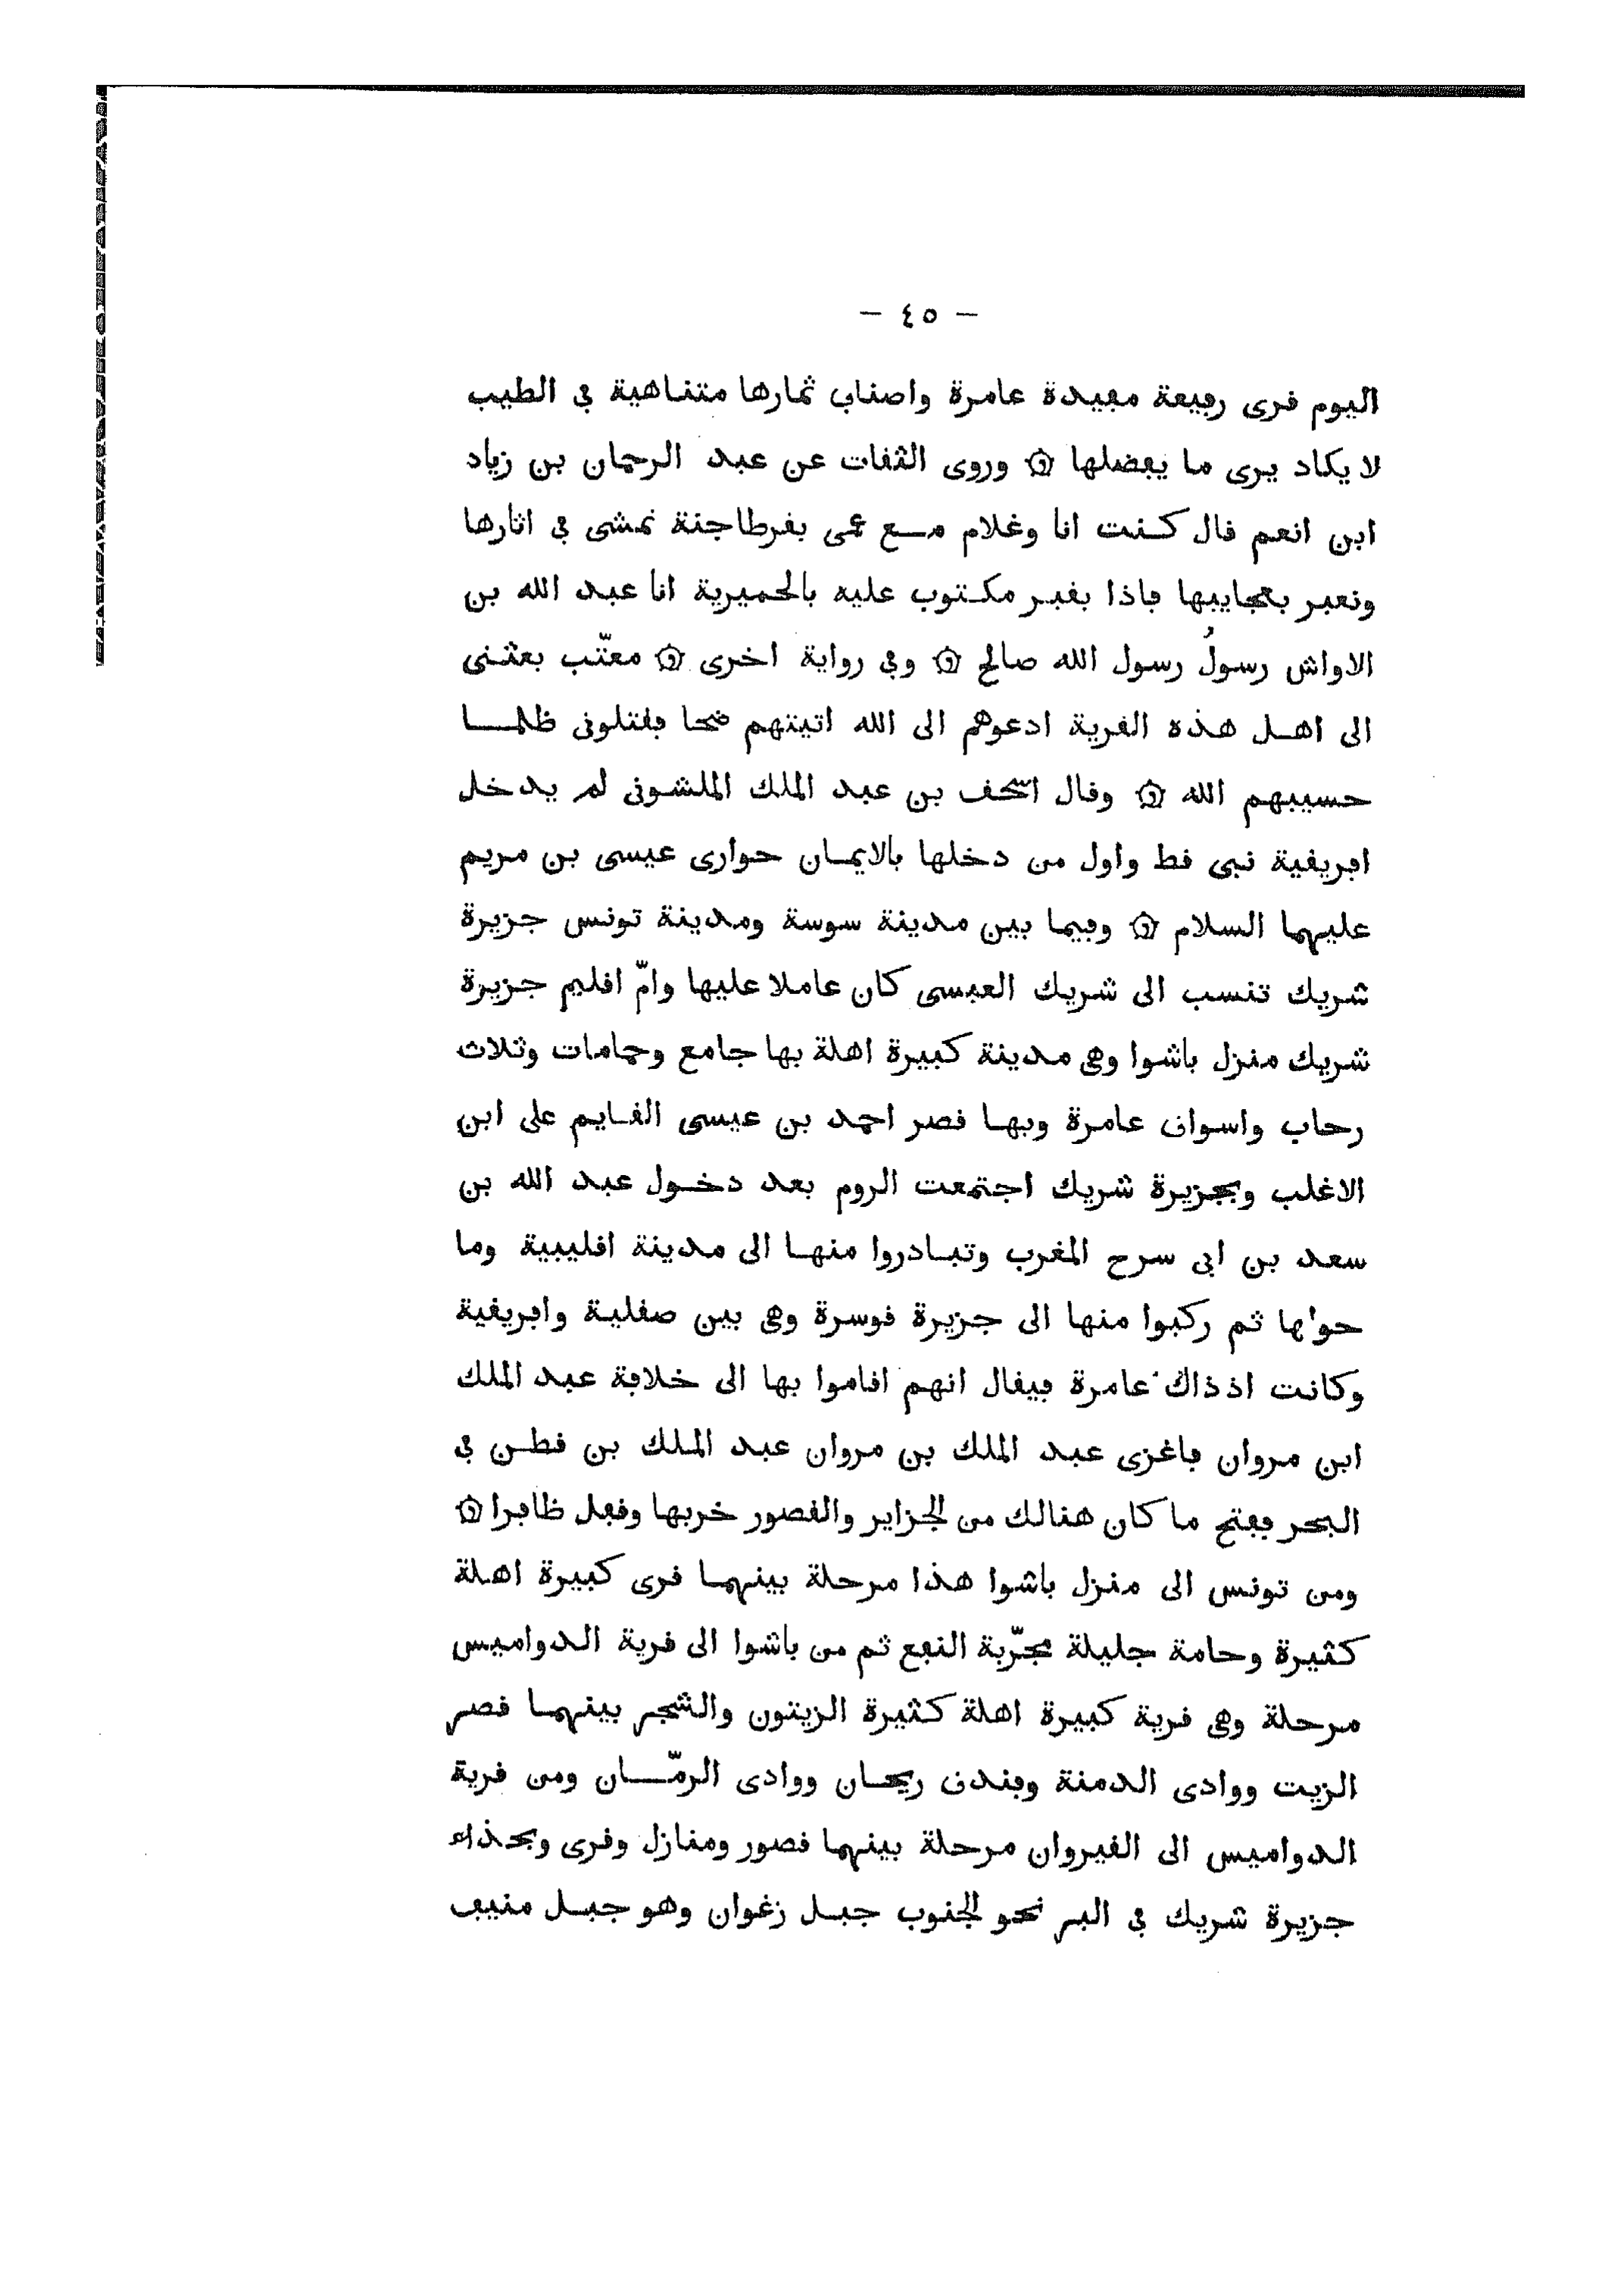 - ٤٥ -
اليوم قرى رفيعة مفيدة عامرة واصناف ثمارها متناهية في الطيب
لا يكاد يرى ما يفضلها ۞ وروى الثقات عن عبد الرحمان بن زياد
ابن انعم قال كنت انا وغلام مع عمى بقرطاجنة نمشى في اثارها
ونعبر بعجايبها فاذا بقبر مكتوب عليه بالحميرية انا عبد الله بن
الاواش رسولُ رسول الله صالح ۞ وفي رواية اخرى ۞ معتّب بعثنى
الى اهل هذه القرية ادعوهم الى الله اتيتهم ضحا فقتلونى ظلما
حسيبهم الله ۞ وقال اسحق بن عبد الملك الملشونى لم يدخل
افريقية نبى قط واول من دخلها بالايمان حوارى عيسى بن مريم
عليهما السلام ۞ وفيما بين مدينة سوسة ومدينة تونس جزيرة
شريك تنسب الى شريك العبسى كان عاملا عليها وامّ اقليم جزيرة
شريك منزل باشوا وهى مدينة كبيرة اهلة بها جامع وحمامات وثلاث
رحاب واسواق عامرة وبها قصر احمد بن عيسى القايم على ابن
الاغلب وبجزيرة شريك اجتمعت الروم بعد دخول عبد الله بن
سعد بن ابى سرح المغرب وتبادروا منها الى مدينة اقليبية وما
حولها ثم ركبوا منها الى جزيرة قوسرة وهى بين صقلية وافريقية
وكانت اذ ذاك عامرة فيقال انهم اقاموا بها الى خلافة عبد الملك
ابن مروان فاغزى عبد الملك بن مروان عبد الملك بن قطن في
البحر ففتح ما كان هنالك من الجزاير والقصور خربها وقفل ظافرا ۞
ومن تونس الى منزل باشوا هذا مرحلة بينهما قرى كبيرة اهلة
كثيرة وحامة جليلة مجرّبة النفع ثم من باشوا الى قرية الدواميس
مرحلة وهى قرية كبيرة اهلة كثيرة الزيتون والشجر بينهما قصر
الزيت ووادى الدمنة وفندق ريحان ووادى الرمّان ومن قرية
الدواميس الى القيروان مرحلة بينهما قصور ومنازل وقرى وبحذاء
جزيرة شريك في البر نحو الجنوب جبل زغوان وهو جبل منيف